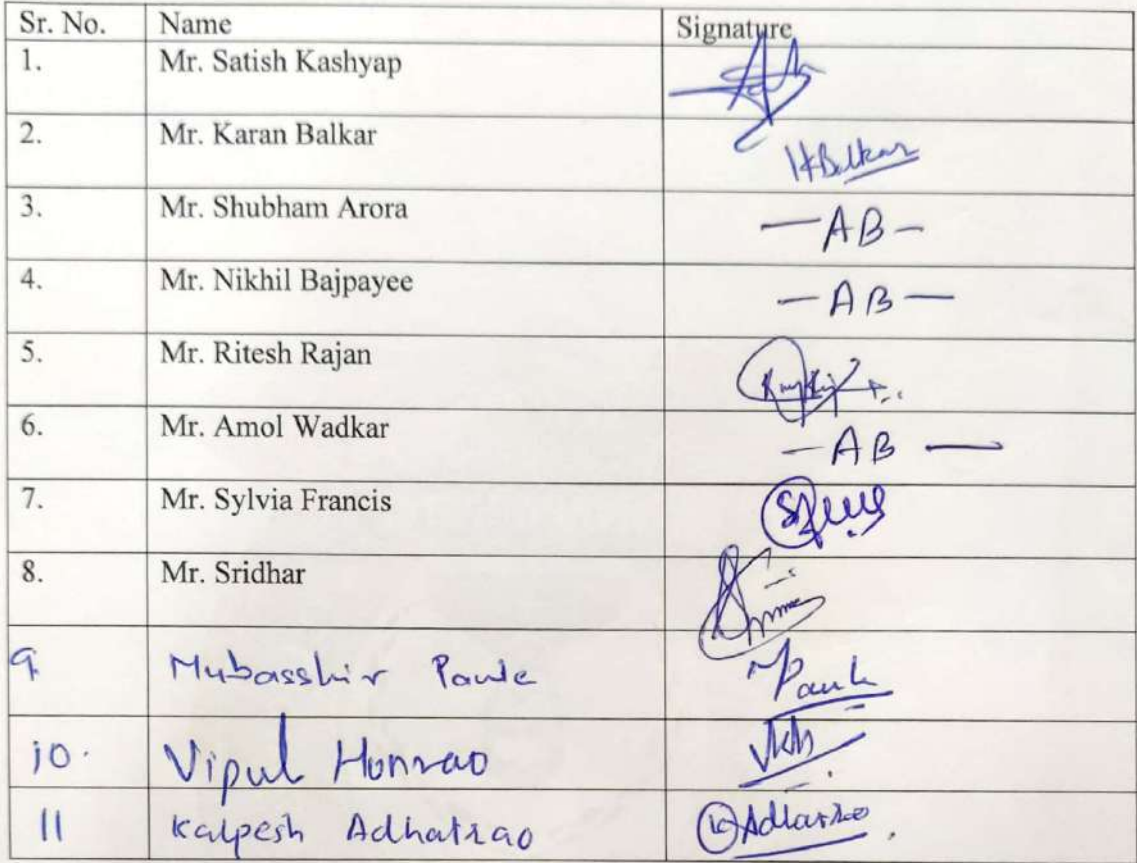 Sr. No. Name Signature
1. Mr. Satish Kashyap
2. Mr. Karan Balkar KBalkar
3. Mr. Shubham Arora — AB —
4. Mr. Nikhil Bajpayee — AB —
5. Mr. Ritesh Rajan
6. Mr. Amol Wadkar — AB —
7. Mr. Sylvia Francis
8. Mr. Sridhar
9. Mubasshir Pawle
10. Vipul Honrao
11 Kalpesh Adhatrao